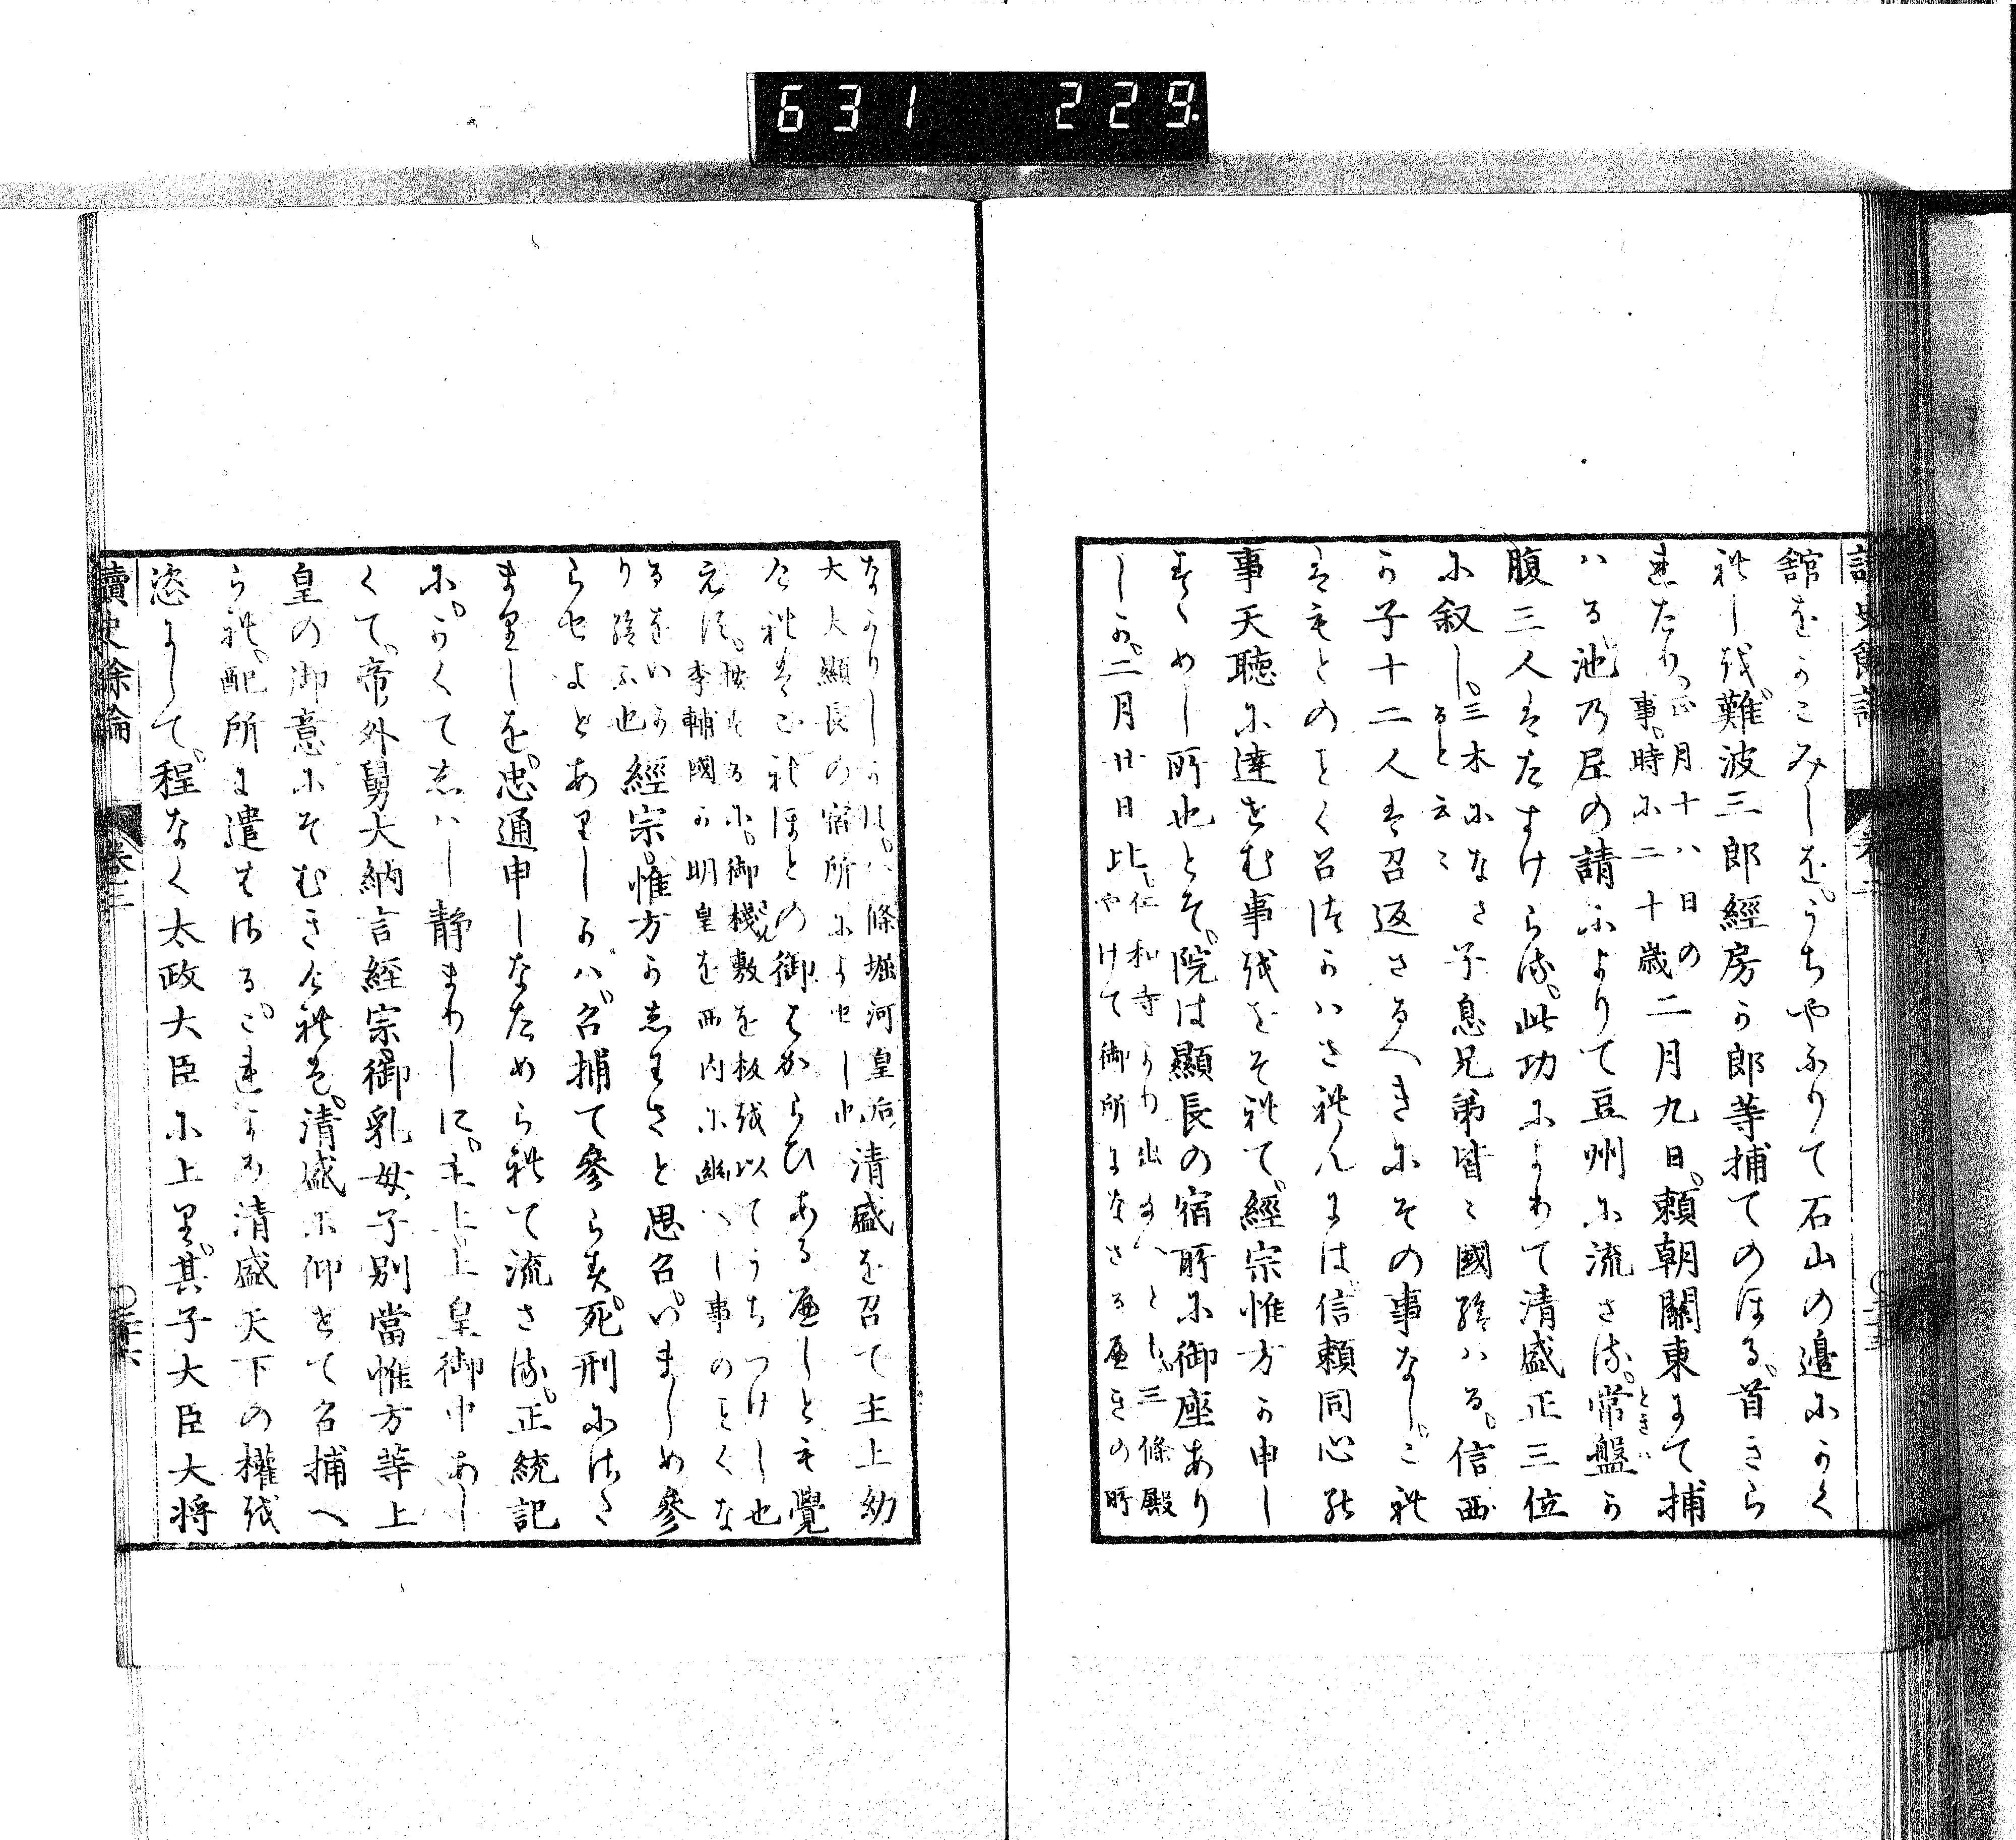 631 229.
館をかこみしを。うちやふりて石山の邊にかく
れし哉。難波三郎經房か郎等捕てのほる。首きら
れたり。正月十八日の事。時に二十歳 二月九日。頼朝關東にて捕
ハる。池乃尼の請によりて豆州に流さる。常盤か
ときハ
腹三人はたすけらる。此功によりて清盛正三位
に叙し。三木になさるると云々 子息兄弟皆々國給ハる。信西
か子十二人は召返さるへきにその事なし。これ
はもとのことく召仕ハされんには信頼同心の
事天聴に達せむ事をおそれて。經宗惟方か申し
すゝめし所也とそ。院は顯長の宿所に御座あり
しか。二月廿日比 仁和寺より出給へとも。三條殿やけて御所になさるへきの所
なかりしかは。八條堀河皇后大夫顯長の宿所によせし也 清盛を召て主上幼
くれはこれほとの御はからひあるへしとも覺
えす。按するに。御棧敷を板を以てうちつけし也 李輔國か明皇を西内に幽へし事のことくな
るをいかり給ふ也 經宗。惟方かしわさと思召。いましめ參
らせよとありしかハ。召捕て參らす。死刑にはさ
まりしを。忠通申しなためられて流さる。正統記
に。かくてしハし靜まりしに。主上上皇御中あし
くて。帝外舅大納言經宗御乳母子別當惟方等上
皇の御意にそむきくれは。清盛に仰せて召捕へ
られ。配所に遣はさる。これより清盛天下の權を
恣にして。程なく太政大臣に上り。其子大臣大将
讀史餘論 卷二